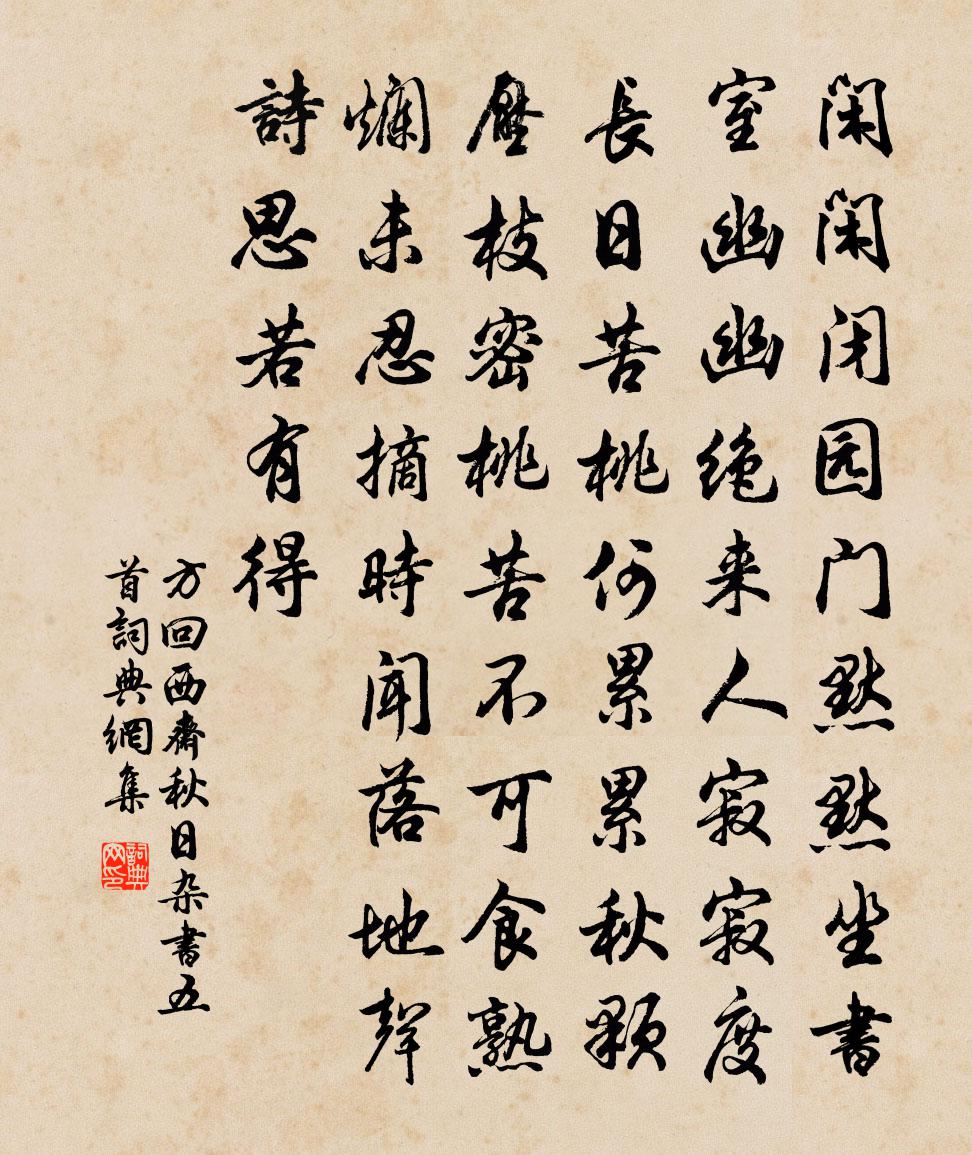 闲闲闭园门默默坐書
室幽幽绝来人寂寂度
長日苦桃何累累秋顆
壓枝密桃苦不可食熟
爛未忍摘時闻落地聲
詩思若有得
方回西齋秋日杂書五
首詞典網集
詞典网印